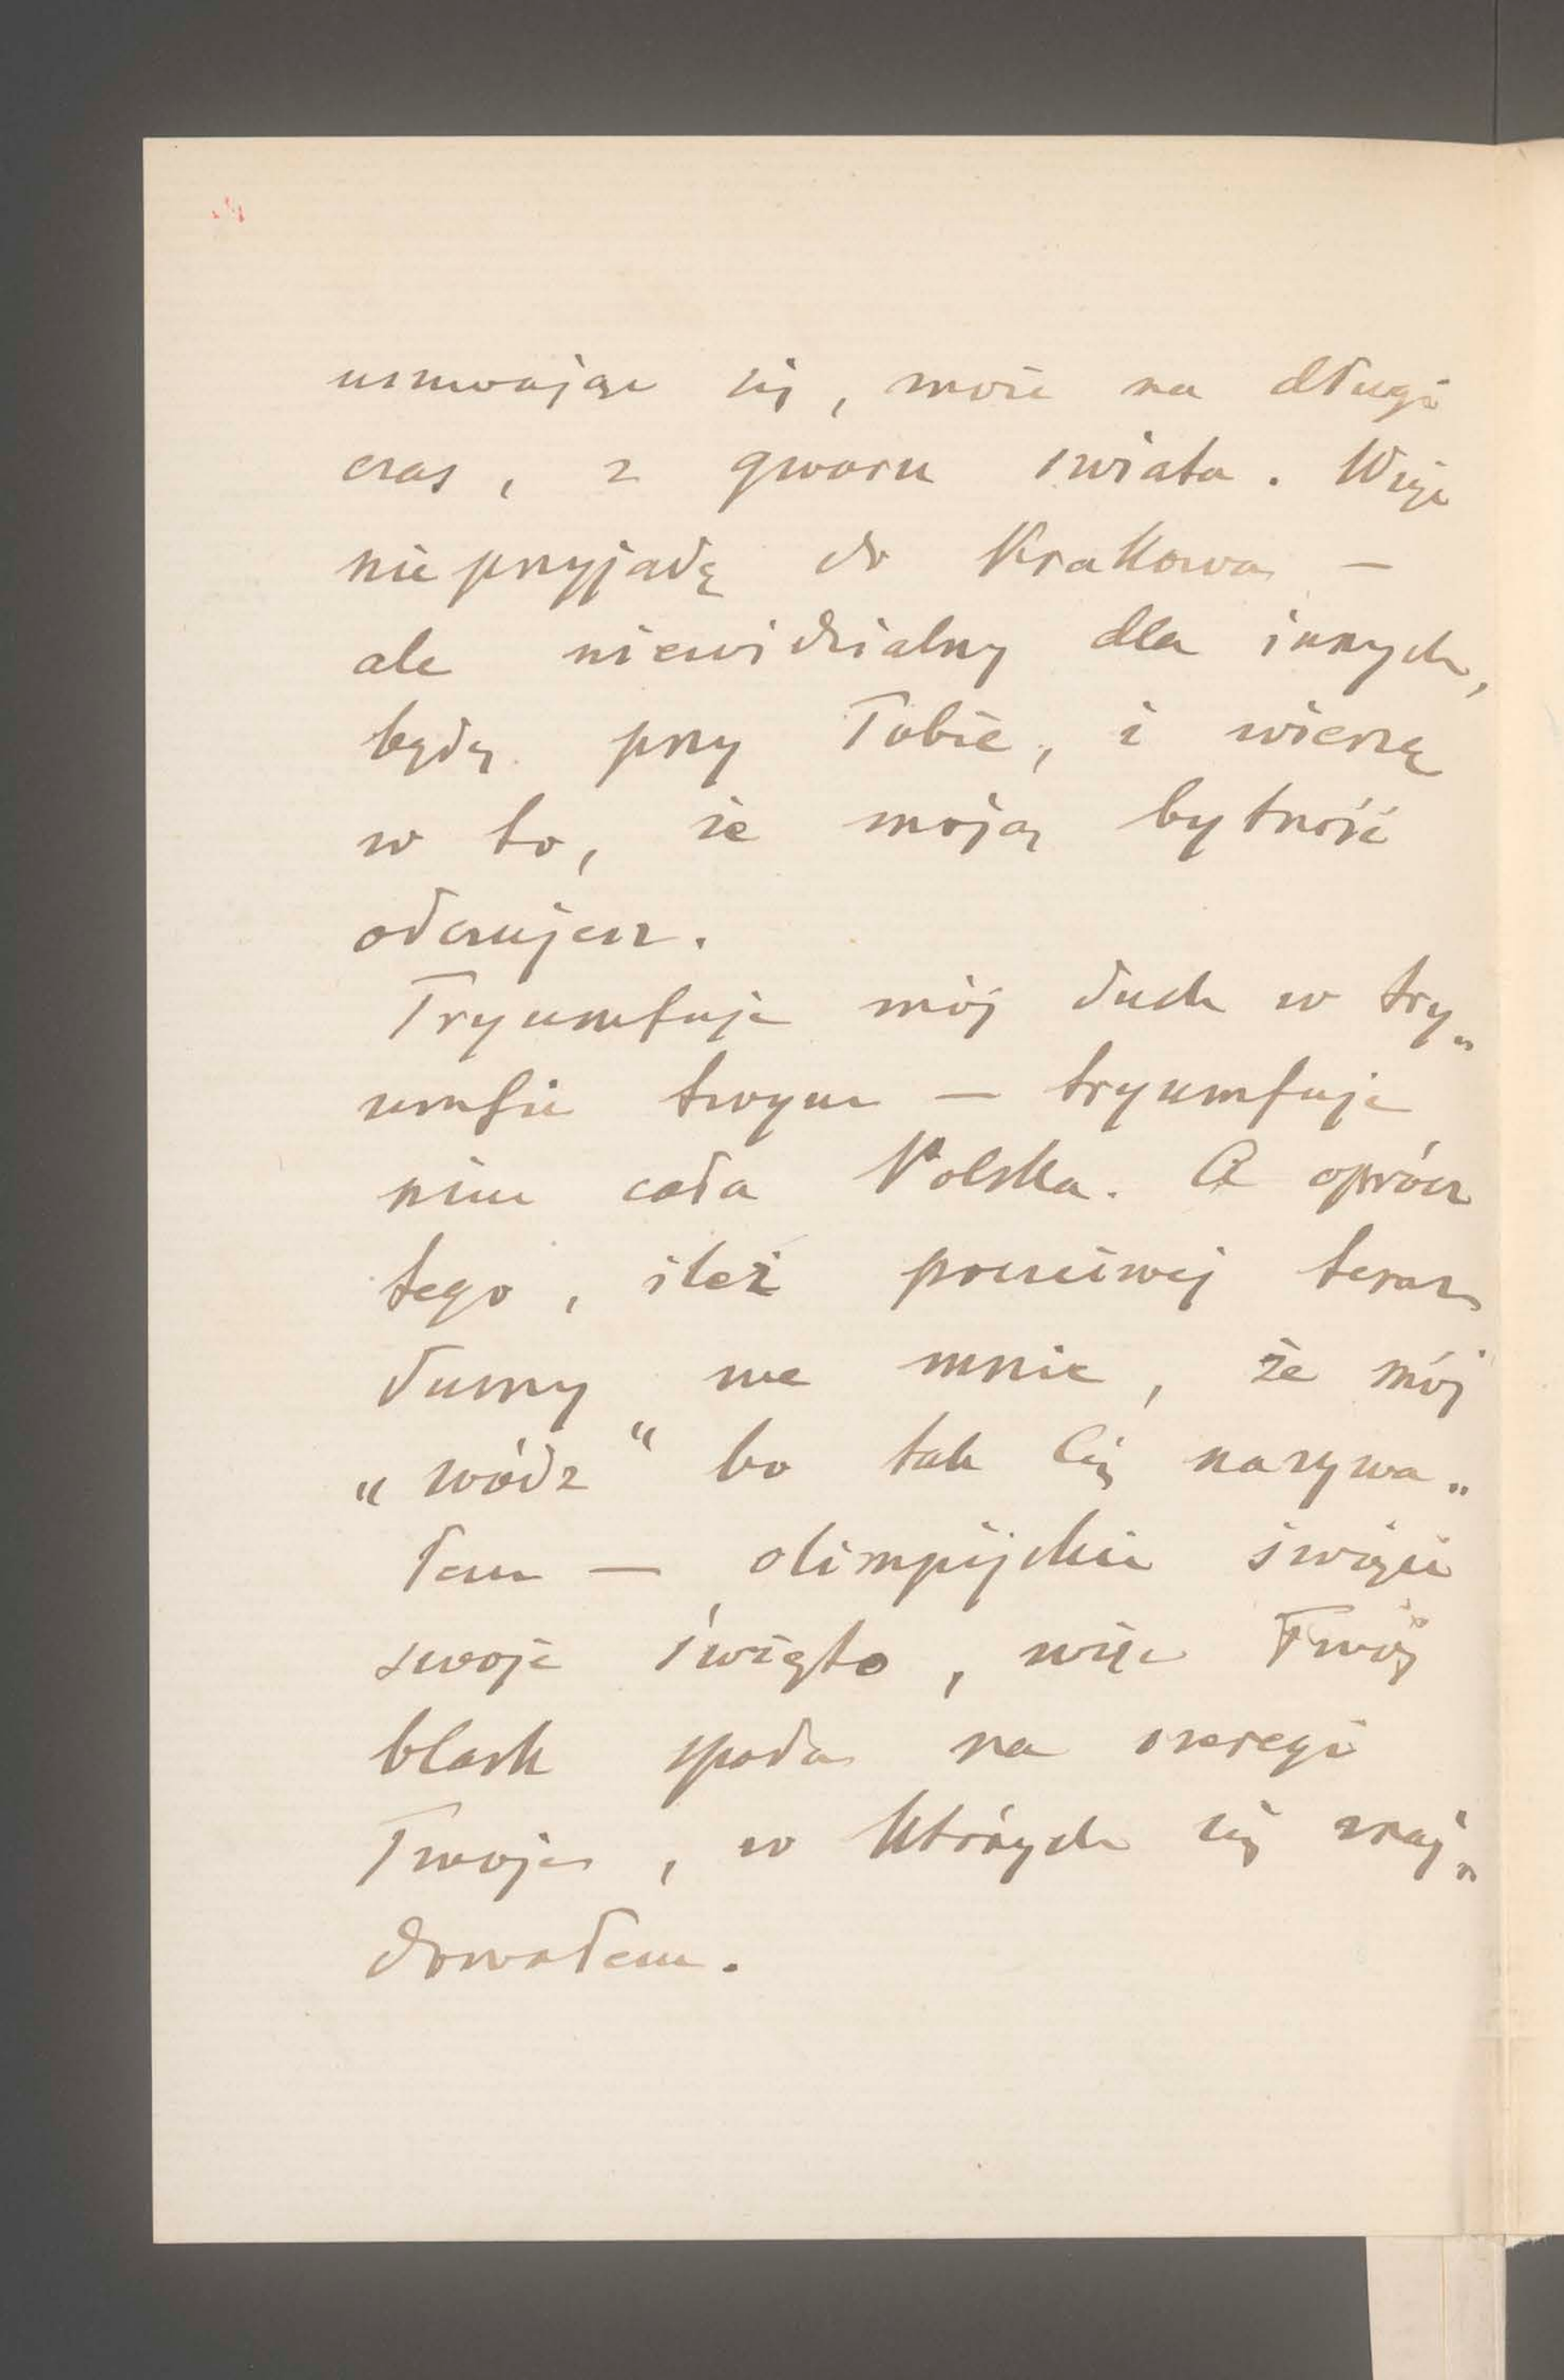 usuwając się, może na długi
czas, z gwaru świata. Więc
nie przyjadę do Krakowa –
ale niewidzialny dla innych,
będę przy Tobie, i wierzę
w to, że moją bytność
odczujesz.
Tryumfuje mój duch w try„
umfie twym – tryumfuje
nim cała Polska. A oprócz
tego, ileż poczciwej teraz
dumy we mnie, że mój
„wódz“ bo tak Cię nazywa„
łem – olimpijskie święci
swoje święto, więc Twój
blask spada na szeregi
Twoje, w których się znaj„
dowałem.